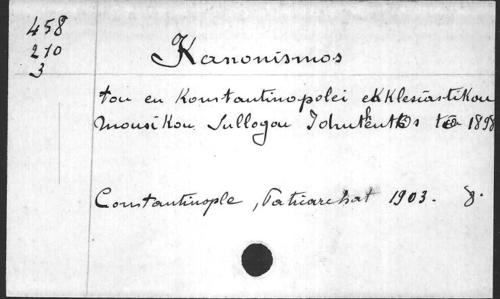 458
210
3
Kanonismos
tou en Konstantinopolei ekklesiastikou
mousikou Sullogou 1898
Constantinople, Patriarchat 1903. 8.